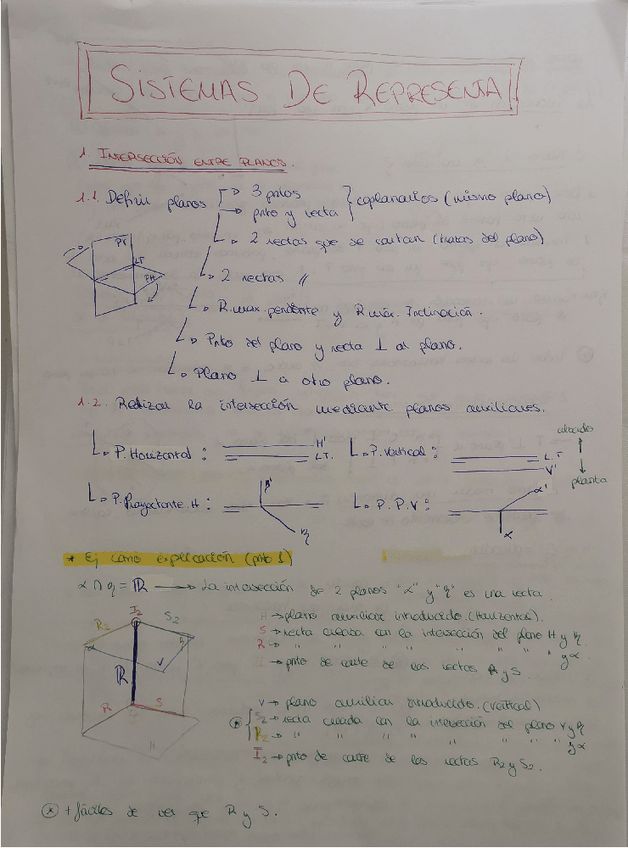 SISTEMAS DE REPRESENTA
1. INTERSECCIÓN ENTRE PLANOS.
1.1. Definir planos → 3 pntos
→ pnto y recta } coplanarios (mismo plano)
→ 2 rectas que se cortan (trazas del plano)
PV
LT
PH
→ 2 rectas //
→ R. max. pendente y R máx. Inclinación.
→ Pnto del plano y recta ⊥ al plano.
→ Plano ⊥ a otro plano.
1.2. Realizar la intersección mediante planos auxiliares.
→ P. Horizontal : H' LT. → P. Vertical : L.T V'
alzado
planta
→ P. Proyectante H : → P.P.V : α' α
* Ej como explicación (pnto 1)
α ∩ η = R → La intersección de 2 planos "α" y "η" es una recta.
I2
R2
S2
V
R
R
S
H
H → plano auxiliar introducido. (Horizontal).
S → recta creada con la intersección del plano H y η.
R → " " " " " " " y α.
→ pnto de corte de las rectas R y S.
V → plano auxiliar introducido. (Vertical)
* S2 → recta creada con la intersección del plano V y η
R2 → " " " " " " " y α
I2 → pnto de corte de las rectas R2 y S2.
* + fáciles de ver que R y S.